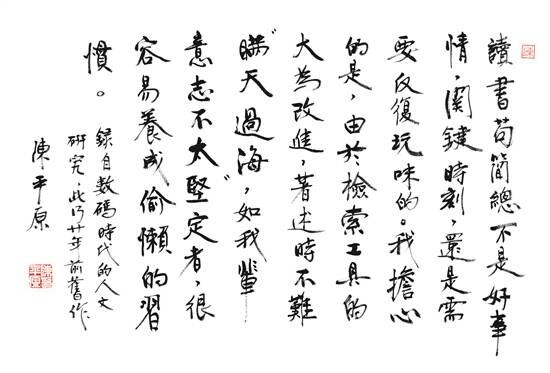 讀書苟簡總不是好事
情，關鍵時刻，還是需
要反復玩味的。我擔心
的是，由於檢索工具的
大為改進，著述時不難
“瞞天過海”，如我輩
意志不太堅定者，很
容易養成偷懶的習
慣。
錄自數碼時代的人文
研究，此乃廿年前舊作
陳平原